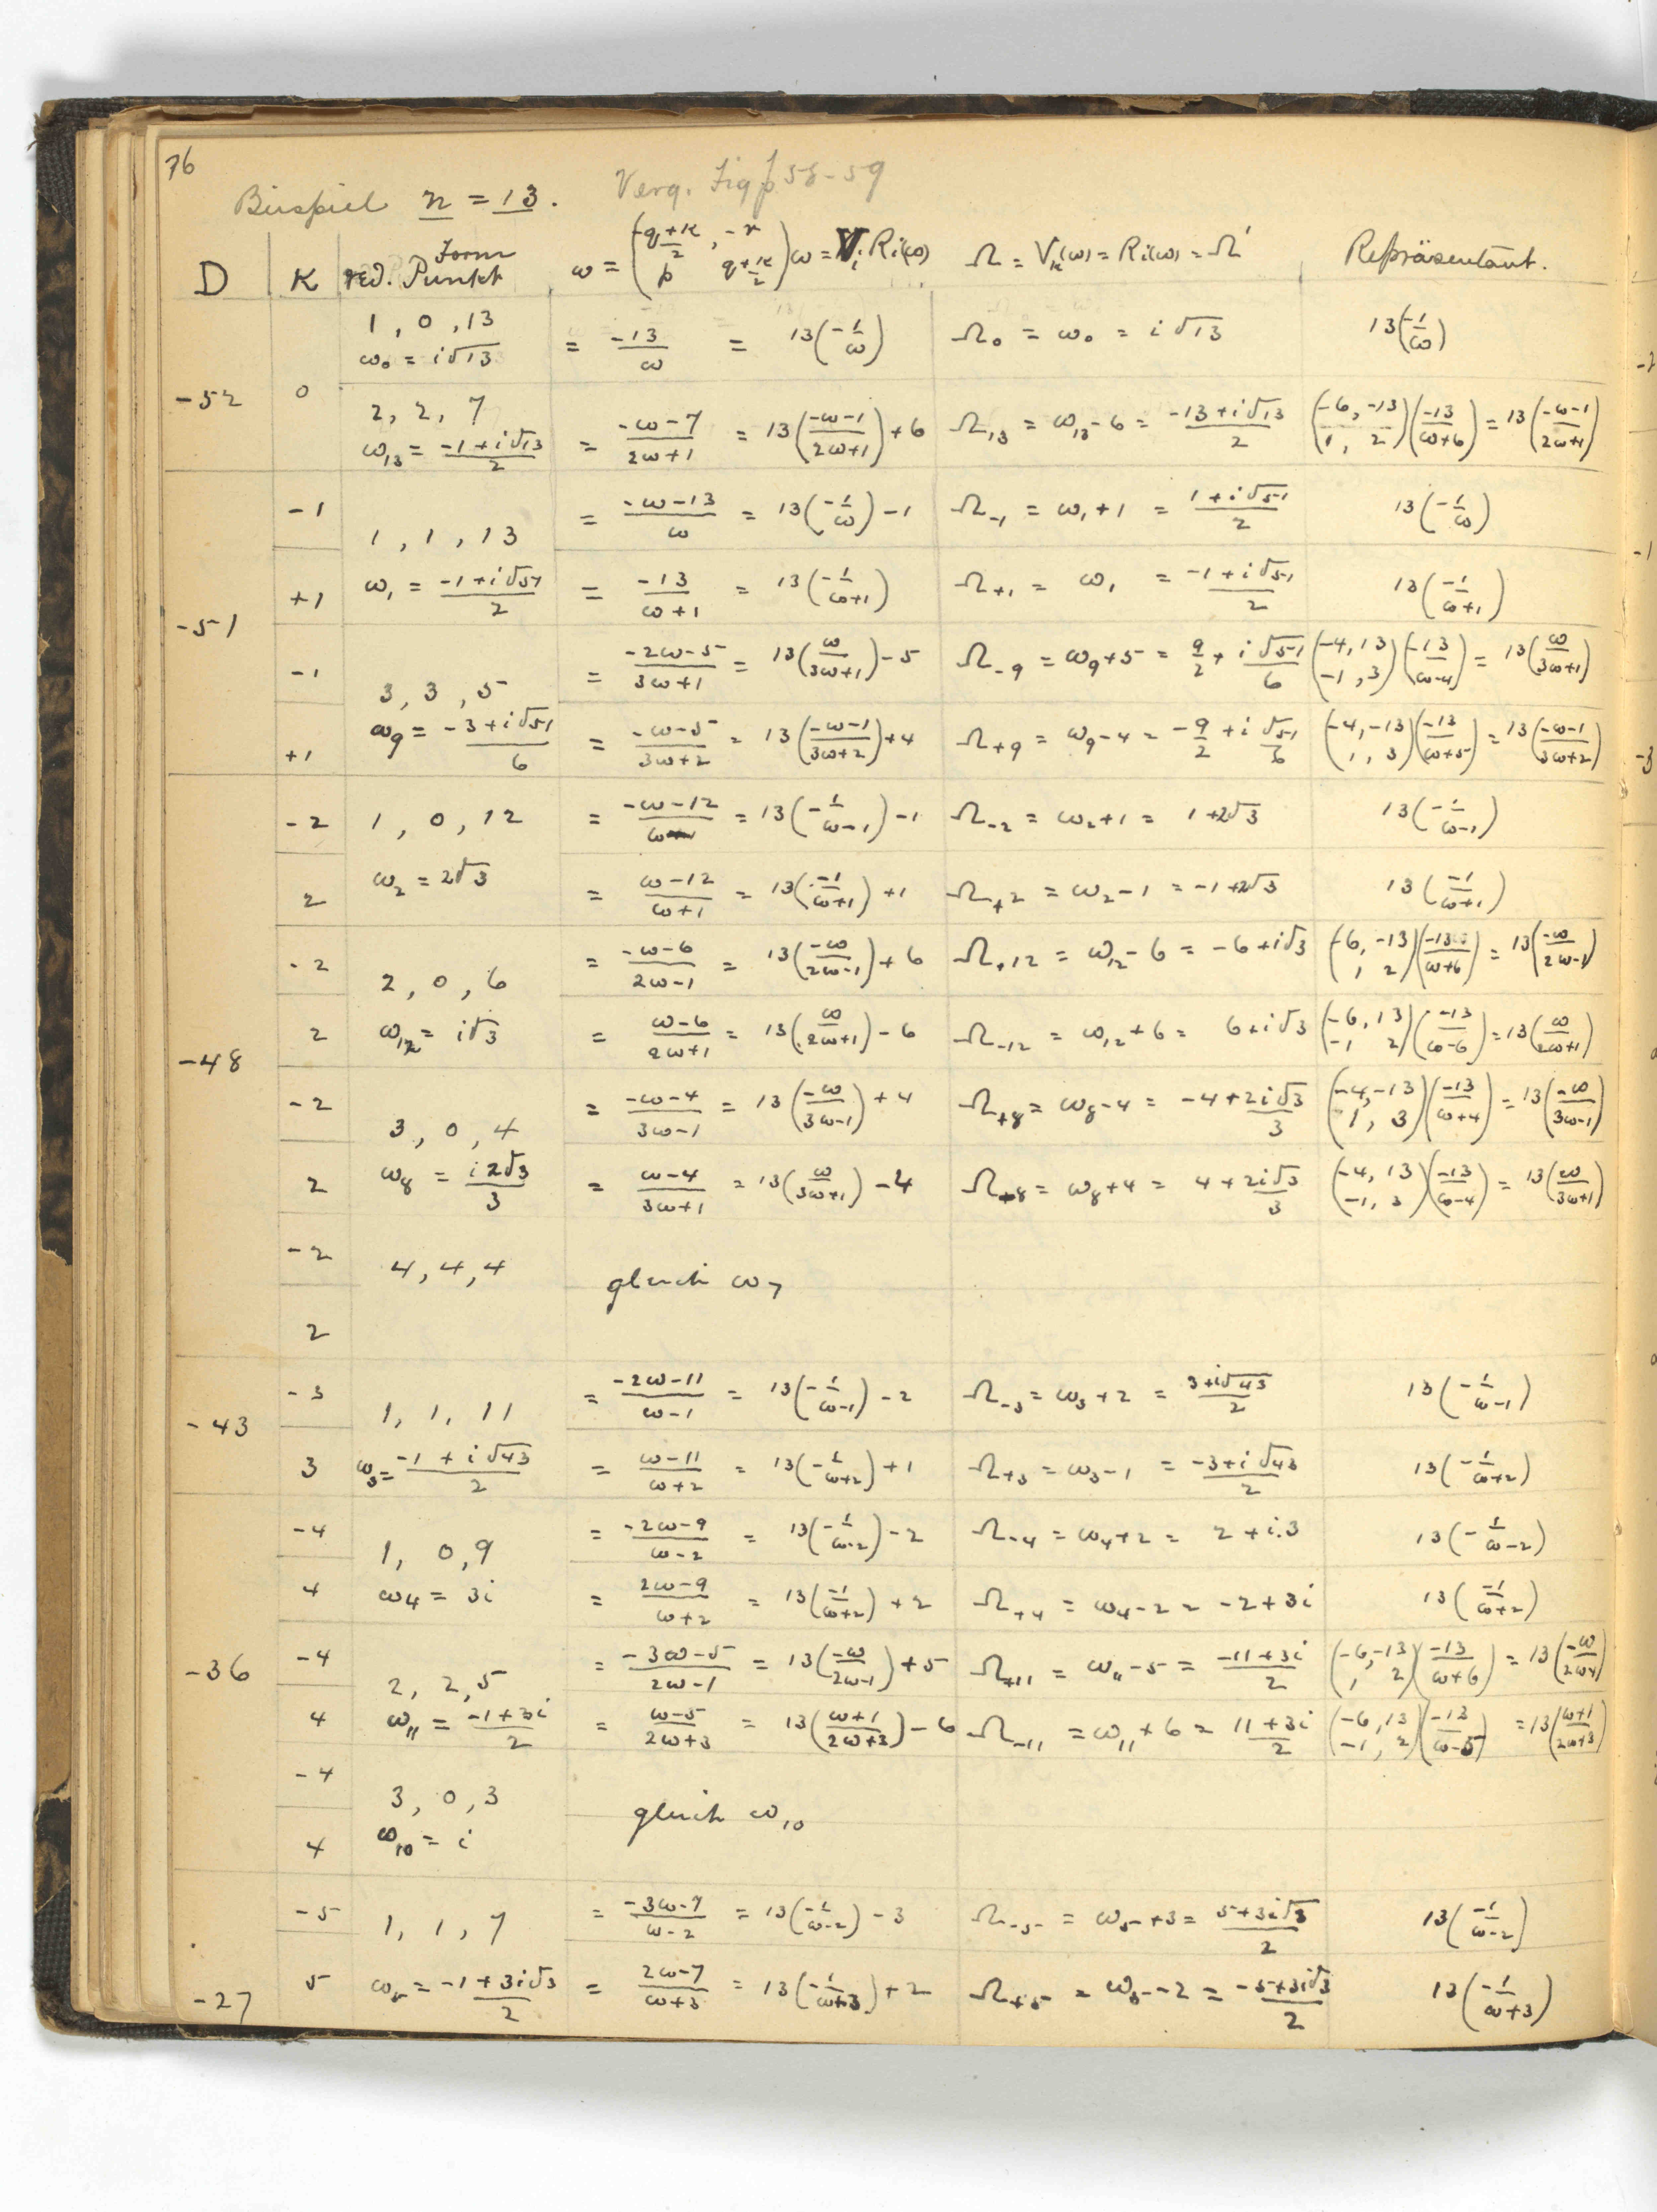 76
Beispiel n = 13. Verg. Fig p. 58-59
D K red. Form Punkt ω = (-q+κ/2, -r / p q+κ/2) ω = V_i R_i(ω) Ω = V_κ(ω) = R_i(ω) = Ω' Repräsentant.
1, 0, 13
ω₀ = i√13 = -13/ω = 13(-1/ω) Ω₀ = ω₀ = i√13 13(-1/ω)
-52 0
2, 2, 7
ω₁₃ = -1+i√13/2 = -ω-7/2ω+1 = 13(-ω-1/2ω+1)+6 Ω₁₃ = ω₁₃-6 = -13+i√13/2 (-6, -13 / 1, 2)(-13/ω+6) = 13(-ω-1/2ω+1)
-1 = -ω-13/ω = 13(-1/ω)-1 Ω₋₁ = ω₁+1 = 1+i√51/2 13(-1/ω)
1, 1, 13
+1 ω₁ = -1+i√51/2 = -13/ω+1 = 13(-1/ω+1) Ω₊₁ = ω₁ = -1+i√51/2 13(-1/ω+1)
-51
-1 = -2ω-5/3ω+1 = 13(ω/3ω+1)-5 Ω₋₉ = ω₉+5 = 9/2 + i√51/6 (-4, 13 / -1, 3)(-13/ω-4) = 13(ω/3ω+1)
3, 3, 5
+1 ω₉ = -3+i√51/6 = -ω-5/3ω+2 = 13(-ω-1/3ω+2)+4 Ω₊₉ = ω₉-4 = -9/2 + i√51/6 (-4, -13 / 1, 3)(-13/ω+5) = 13(-ω-1/3ω+2)
-2 1, 0, 12 = -ω-12/ω-1 = 13(-1/ω-1)-1 Ω₋₂ = ω₂+1 = 1+2√3 13(-1/ω-1)
2 ω₂ = 2√3 = ω-12/ω+1 = 13(-1/ω+1)+1 Ω₊₂ = ω₂-1 = -1+2√3 13(-1/ω+1)
-2 2, 0, 6 = -ω-6/2ω-1 = 13(-ω/2ω-1)+6 Ω₊₁₂ = ω₁₂-6 = -6+i√3 (-6, -13 / 1 2)(-13/ω+6) = 13(-ω/2ω-1)
2 ω₁₂ = i√3 = ω-6/2ω+1 = 13(ω/2ω+1)-6 Ω₋₁₂ = ω₁₂+6 = 6+i√3 (-6, 13 / -1 2)(-13/ω-6) = 13(ω/2ω+1)
-48
-2 = -ω-4/3ω-1 = 13(-ω/3ω-1)+4 Ω₊₈ = ω₈-4 = -4+2i√3/3 (-4, -13 / 1, 3)(-13/ω+4) = 13(-ω/3ω-1)
3, 0, 4
2 ω₈ = i2√3/3 = ω-4/3ω+1 = 13(ω/3ω+1)-4 Ω₋₈ = ω₈+4 = 4+2i√3/3 (-4, 13 / -1, 3)(-13/ω-4) = 13(ω/3ω+1)
-2
4, 4, 4 gleich ω₇
2
-3 = -2ω-11/ω-1 = 13(-1/ω-1)-2 Ω₋₃ = ω₃+2 = 3+i√43/2 13(-1/ω-1)
-43 1, 1, 11
3 ω₃ = -1+i√43/2 = ω-11/ω+2 = 13(-1/ω+2)+1 Ω₊₃ = ω₃-1 = -3+i√43/2 13(-1/ω+2)
-4 1, 0, 9 = -2ω-9/ω-2 = 13(-1/ω-2)-2 Ω₋₄ = ω₄+2 = 2+i.3 13(-1/ω-2)
4 ω₄ = 3i = 2ω-9/ω+2 = 13(-1/ω+2)+2 Ω₊₄ = ω₄-2 = -2+3i 13(-1/ω+2)
-36 -4 = -3ω-5/2ω-1 = 13(-ω/2ω-1)+5 Ω₊₁₁ = ω₁₁-5 = -11+3i/2 (-6, -13 / 1, 2)(-13/ω+6) = 13(-ω/2ω-1)
2, 2, 5
4 ω₁₁ = -1+3i/2 = ω-5/2ω+3 = 13(ω+1/2ω+3)-6 Ω₋₁₁ = ω₁₁+6 = 11+3i/2 (-6, 13 / -1, 2)(-13/ω-5) = 13(ω+1/2ω+3)
-4
3, 0, 3 gleich ω₁₀
4 ω₁₀ = i
-5 1, 1, 7 = -3ω-7/ω-2 = 13(-1/ω-2)-3 Ω₋₅ = ω₅+3 = 5+3i√3/2 13(-1/ω-2)
-27 5 ω₅ = -1+3i√3/2 = 2ω-7/ω+3 = 13(-1/ω+3)+2 Ω₊₅ = ω₅-2 = -5+3i√3/2 13(-1/ω+3)